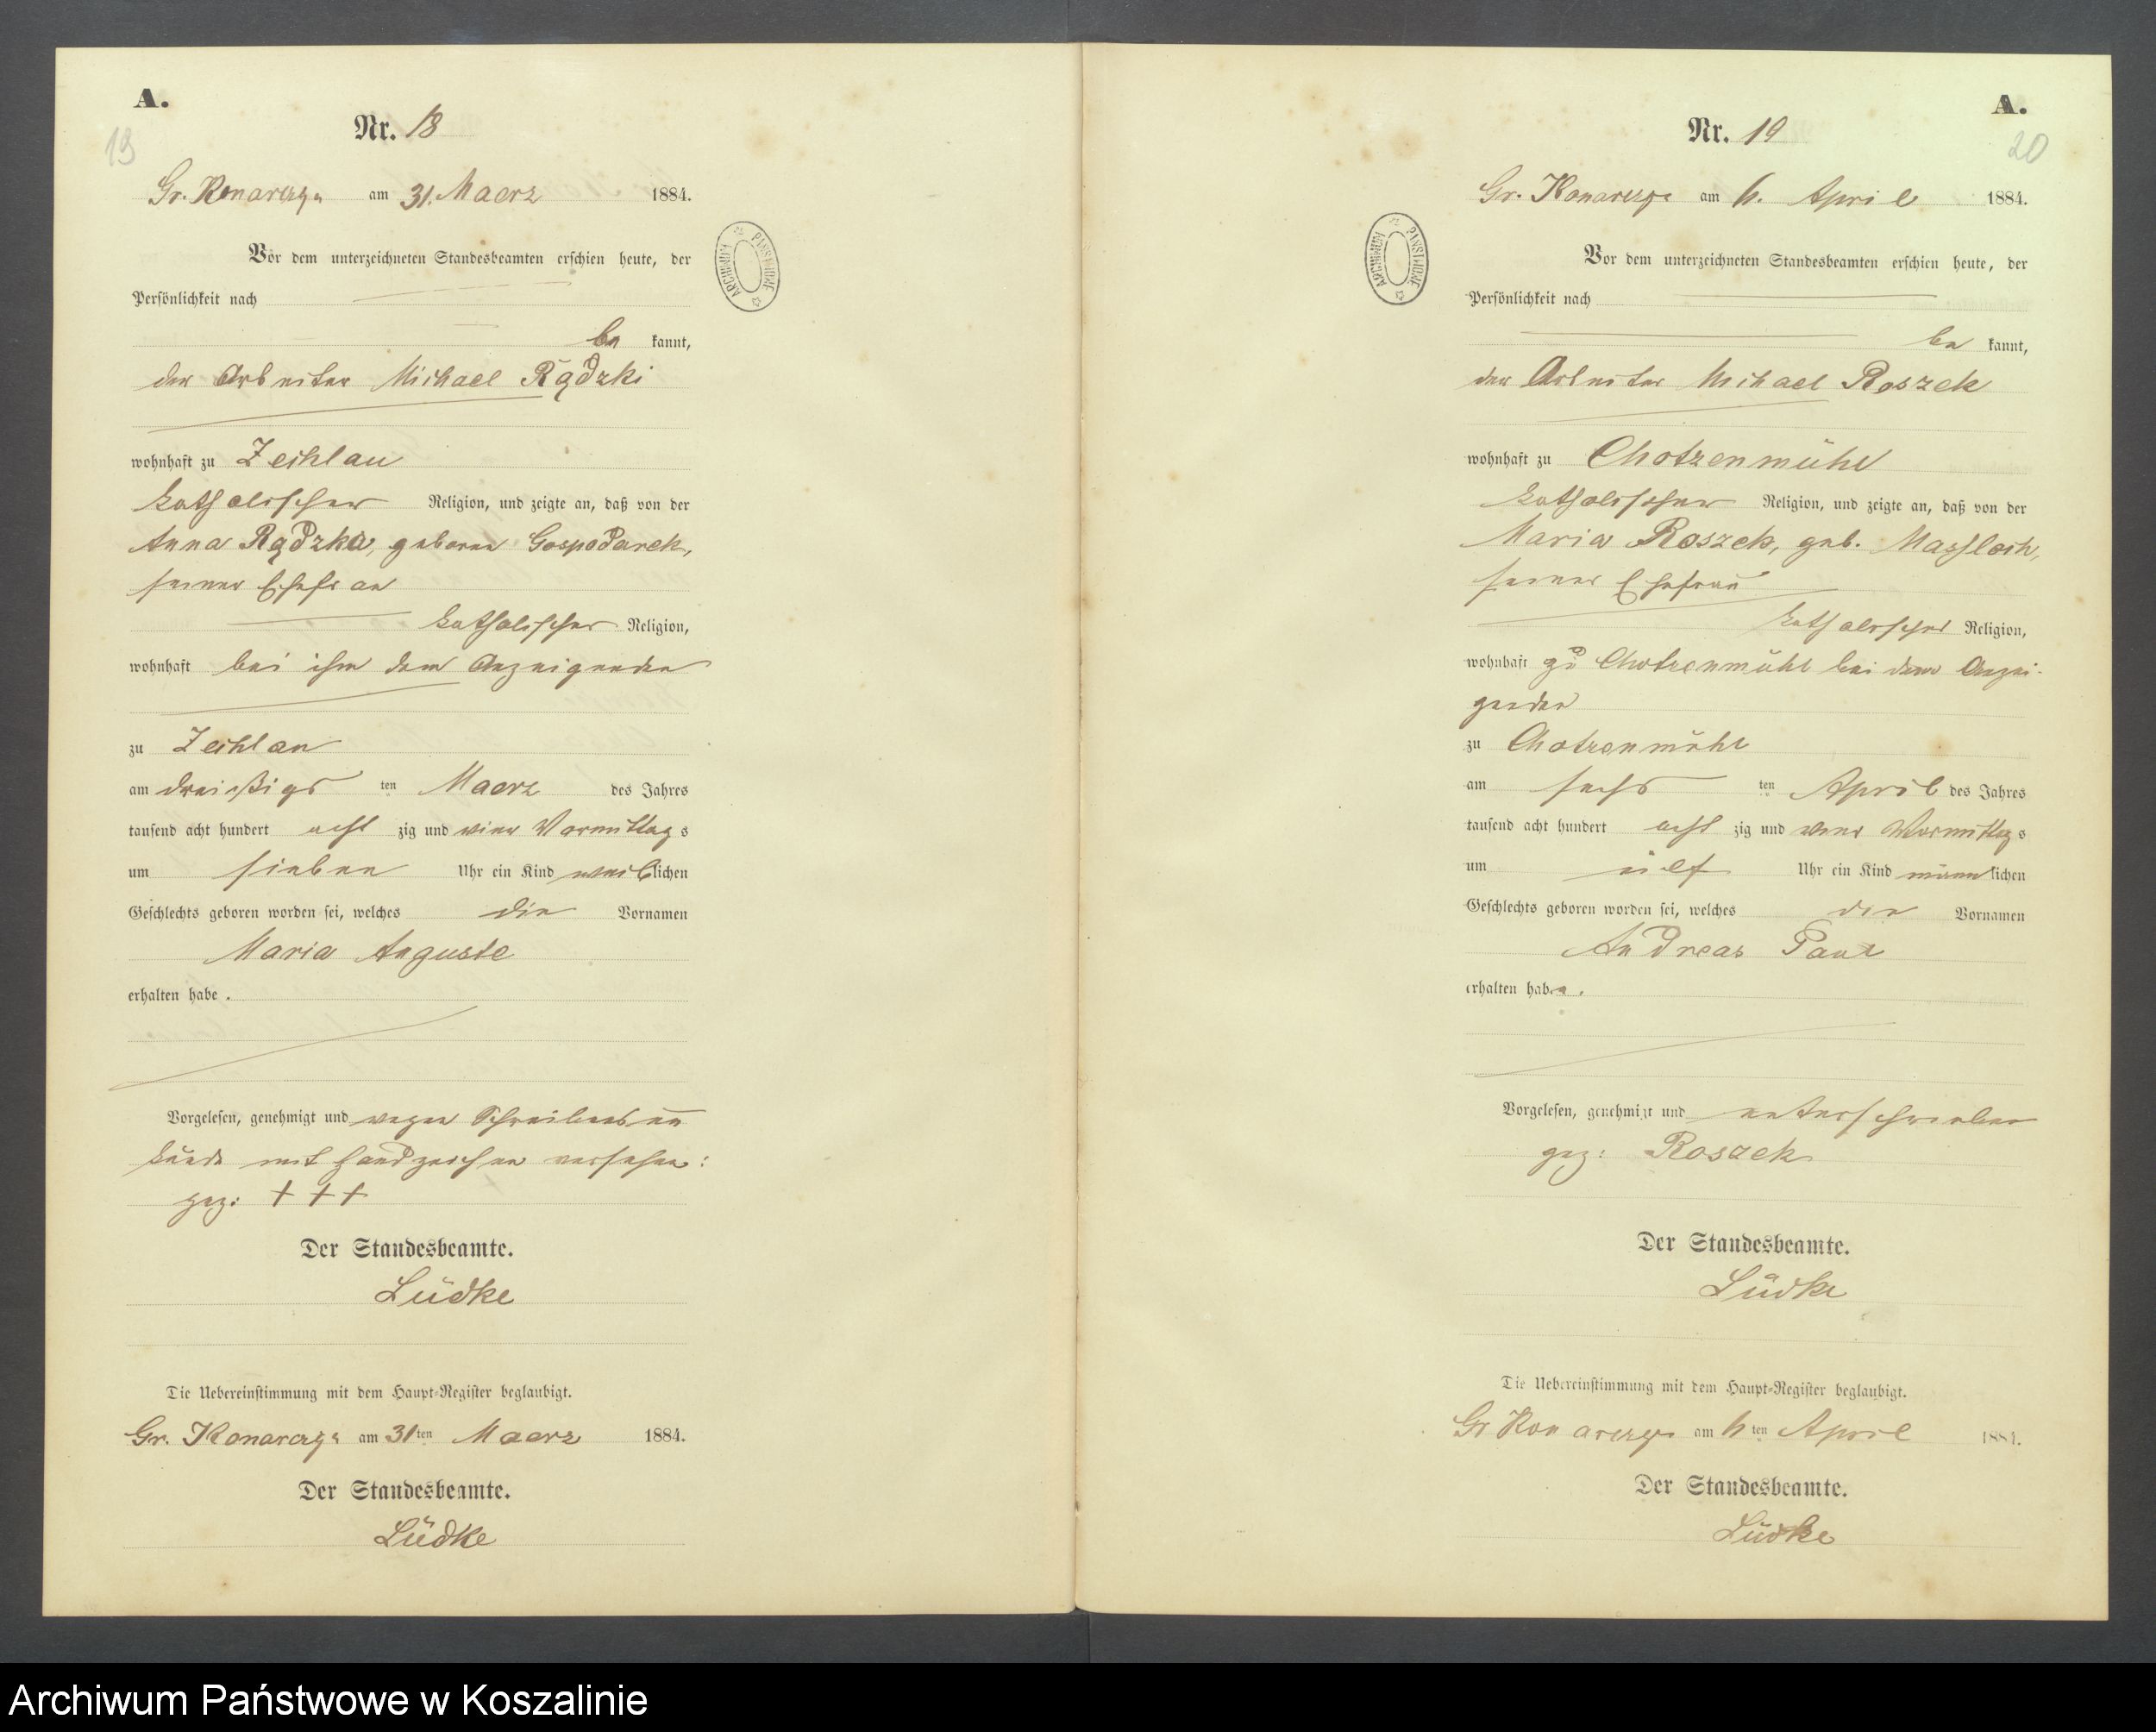 A.
19
Nr. 18
Gr. Konarczyn am 31. Maerz 1884.
Vor dem unterzeichneten Standesbeamten erschien heute, der
Persönlichkeit nach
be kannt,
der Arbeiter Michael Rądzki
wohnhaft zu Zechlau
katholischer Religion, und zeigte an, daß von der
Anna Rądzka, geborne Gospodarek,
seiner Ehefrau
katholischer Religion,
wohnhaft bei ihm dem Anzeigenden
zu Zechlau
am dreißigs ten Maerz des Jahres
tausend acht hundert acht zig und vier Vormittag s
um sieben Uhr ein Kind weiblichen
Geschlechts geboren worden sei, welches die Vornamen
Maria Auguste
erhalten habe.
Vorgelesen, genehmigt und wegen Schreibensun
kunde mit Handzeichen versehen:
gez: + + +
Der Standesbeamte.
Lüdke
Die Uebereinstimmung mit dem Haupt-Register beglaubigt.
Gr. Konarczyn am 31ten Maerz 1884.
Der Standesbeamte.
Lüdke
ARCHIWUM PAŃSTWOWE
A.
20
Nr. 19
Gr. Konarczyn am 6. April 1884.
Vor dem unterzeichneten Standesbeamten erschien heute, der
Persönlichkeit nach
be kannt,
der Arbeiter Michael Roszek
wohnhaft zu Chotzenmühl
katholischer Religion, und zeigte an, daß von der
Maria Roszek, geb. Massloch,
seiner Ehefrau
katholischer Religion,
wohnhaft zu Chotzenmühl bei dem Anzei-
genden
zu Chotzenmühl
am sechs ten April des Jahres
tausend acht hundert acht zig und vier Vormittag s
um eilf Uhr ein Kind männlichen
Geschlechts geboren worden sei, welches die Vornamen
Andreas Paul
erhalten habe.
Vorgelesen, genehmigt und unterschrieben
gez: Roszek
Der Standesbeamte.
Lüdke
Die Uebereinstimmung mit dem Haupt-Register beglaubigt.
Gr Konarczyn am 6ten April 1884.
Der Standesbeamte.
Lüdke
ARCHIWUM PAŃSTWOWE
Archiwum Państwowe w Koszalinie